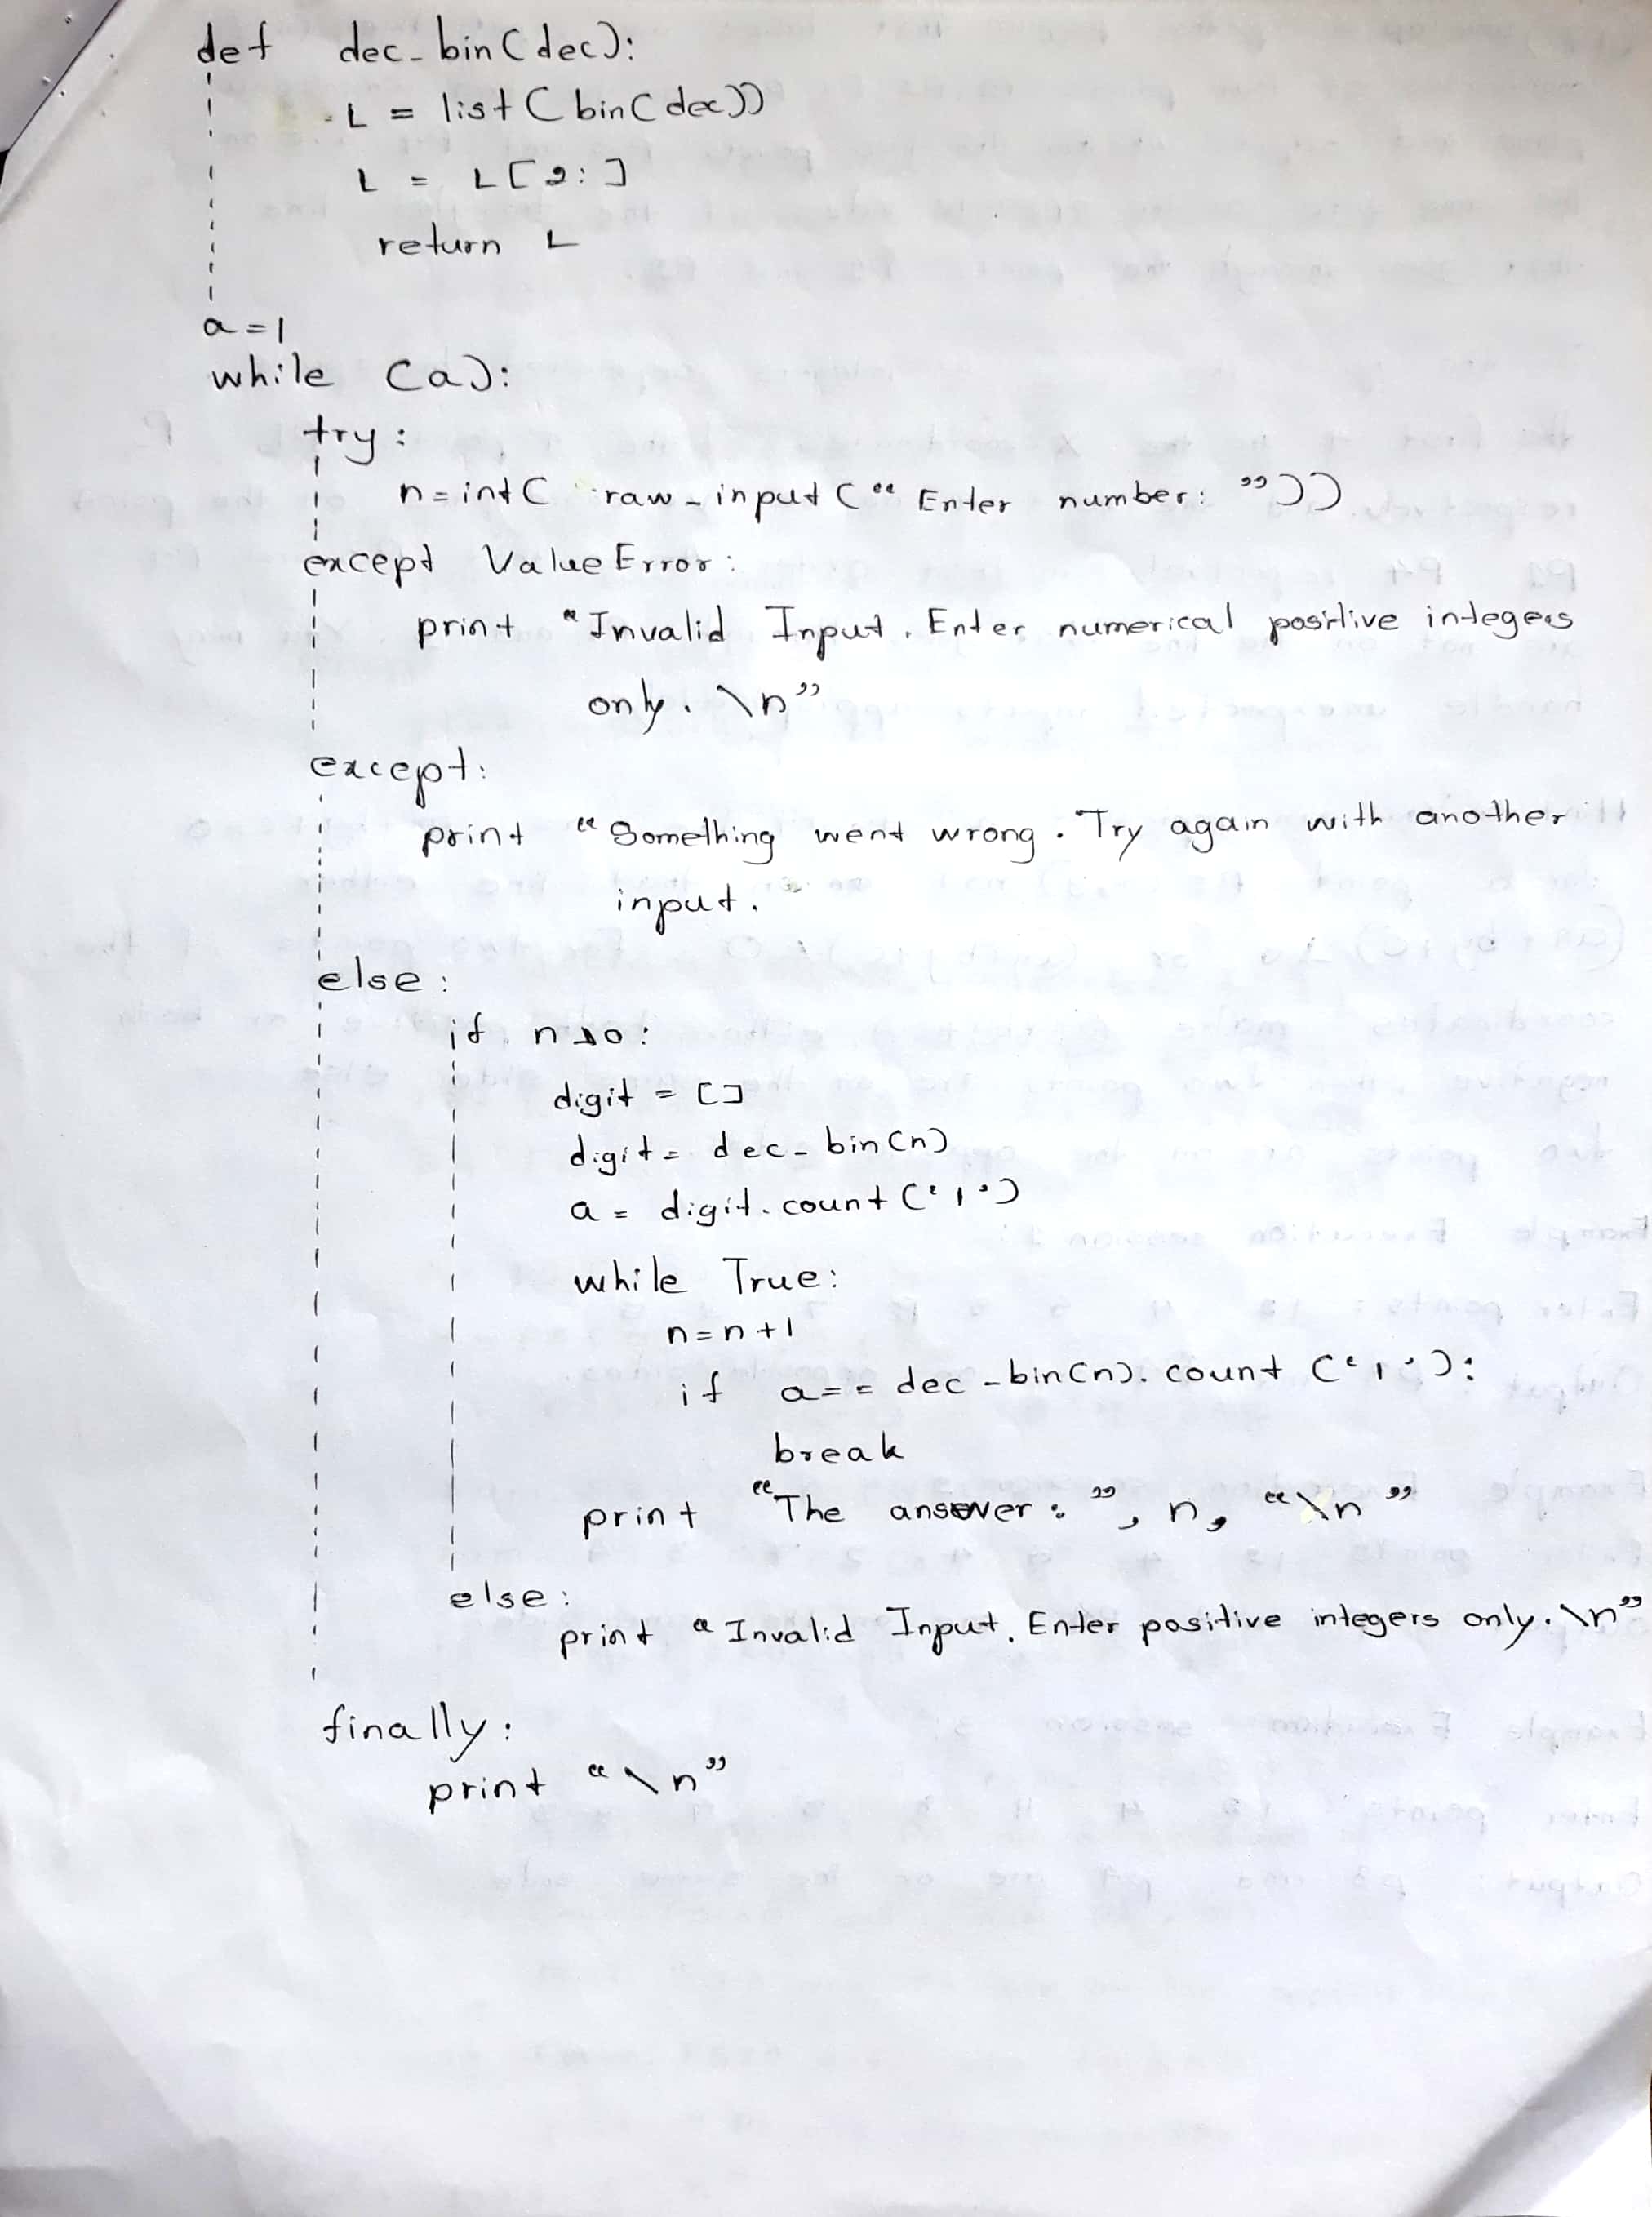 def dec_bin(dec):
L = list(bin(dec))
L = L[2:]
return L
a=1
while (a):
try:
n=int( raw_input(“Enter number: ”))
except ValueError:
print “Invalid Input. Enter numerical positive integers
only. \n”
except:
print “Something went wrong. Try again with another
input.
else:
if n>0:
digit = []
digit = dec_bin(n)
a = digit.count('1')
while True:
n=n+1
if a== dec_bin(n).count('1'):
break
print “The answer: ”, n, “\n”
else:
print “Invalid Input. Enter positive integers only. \n”
finally:
print “\n”